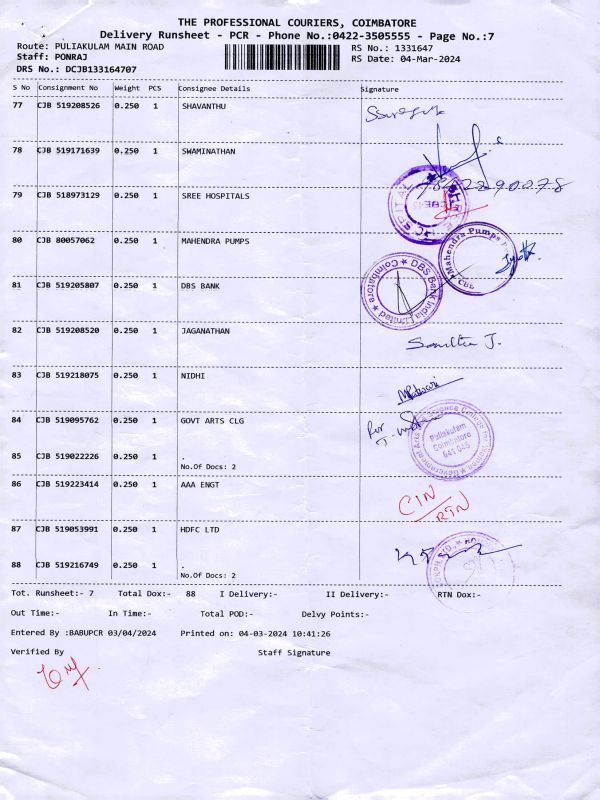 THE PROFESSIONAL COURIERS, COIMBATORE
Delivery Runsheet - PCR - Phone No.:0422-3505555 - Page No.:7
Route: PULIAKULAM MAIN ROAD RS No.: 1331647
Staff: PONRAJ RS Date: 04-Mar-2024
DRS No.: DCJB133164707
S No Consignment No Weight PCS Consignee Details Signature
77 CJB 519208526 0.250 1 SHAVANTHU
78 CJB 519171639 0.250 1 SWAMINATHAN
9842290278
79 CJB 518973129 0.250 1 SREE HOSPITALS
80 CJB 80057062 0.250 1 MAHENDRA PUMPS
Mahendra Pumps
CBE
81 CJB 519205807 0.250 1 DBS BANK
DBS Bank India Limited
Coimbatore
82 CJB 519208520 0.250 1 JAGANATHAN
J.
83 CJB 519218075 0.250 1 NIDHI
84 CJB 519095762 0.250 1 GOVT ARTS CLG
Government Arts and Science College for Women
Puliakulam
Coimbatore
641 045
85 CJB 519022226 0.250 1 .
No.Of Docs: 2
86 CJB 519223414 0.250 1 AAA ENGT
CIN
RTN
87 CJB 519053991 0.250 1 HDFC LTD
88 CJB 519216749 0.250 1 .
No.Of Docs: 2
Tot. Runsheet:- 7 Total Dox:- 88 I Delivery:- II Delivery:- RTN Dox:-
Out Time:- In Time:- Total POD:- Delvy Points:-
Entered By :BABUPCR 03/04/2024 Printed on: 04-03-2024 10:41:26
Verified By Staff Signature